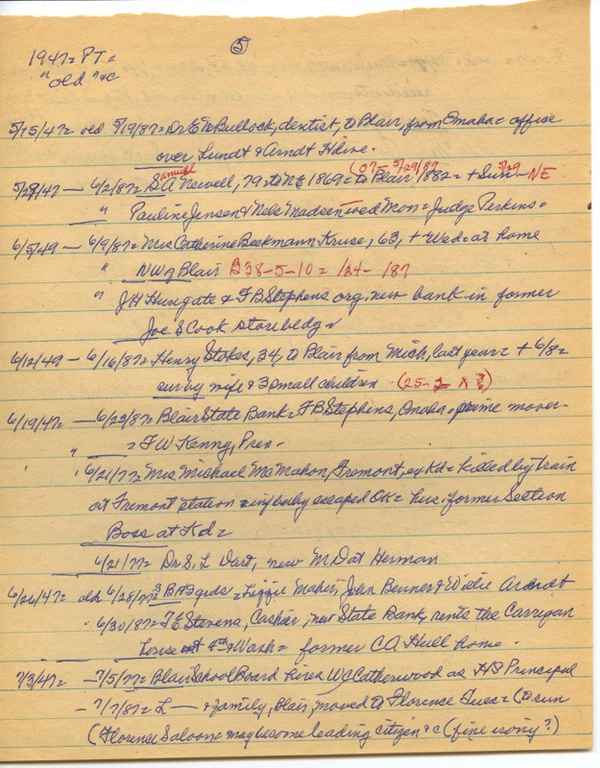 5
1947= PT=
"old" &c
5/15/47= old 5/19/87= Dr E W Bullock, dentist, to Blair, from Omaha= office
over Lundt & Arndt Hdwe.
5/29/47 — 6/2/87= Samuel A Newell, 79 to NE 1869= to Blair 1882= + Sun 5/29 — NE
(07— 5/29/87
" Pauline Jensen & Nels Madsen wed Mon= Judge Perkins=
6/5/49 — 6/9/87= Mrs Catherine Beckmann Kruse, 63, + Wed= at home
" NW of Blair B38-5-10= 1/24- 187
" J H Hungate & F B Stephens org. new bank in former
Joe S Cook store bldg
6/12/49 — 6/16/87= Henry Stokes, 34, to Blair from Mich, last year= + 6/8=
surv by wife & 3 small children (25-2 X ?)
6/19/47= — 6/23/87= Blair State Bank= F B Stephens, Omaha= prime mover-
" = F W Kenny, Pres=
' 6/21/77= Mrs Michael McMahon, Fremont, ex Kd= killed by train
at Fremont station = baby escaped OK= former Section
Boss at Kd=
6/21/77= Dr S. L Dart, new MD at Herman
6/26/47= old 6/28/77= B HS grads= Lizzie Maher, John Benner & Willie Arndt
" 6/30/87= F E Stevens, Cashier, new State Bank, rents the Carrigan
house 4th & Wash= former C A Hull home.
7/3/47= —7/5/77= Blair School Board hires W C Catherwood as HS Principal
— 7/7/87= L — & family, Blair, moved to Florence Tues= (to run
(Florence Saloon= may become leading citizen &c (fine irony?)